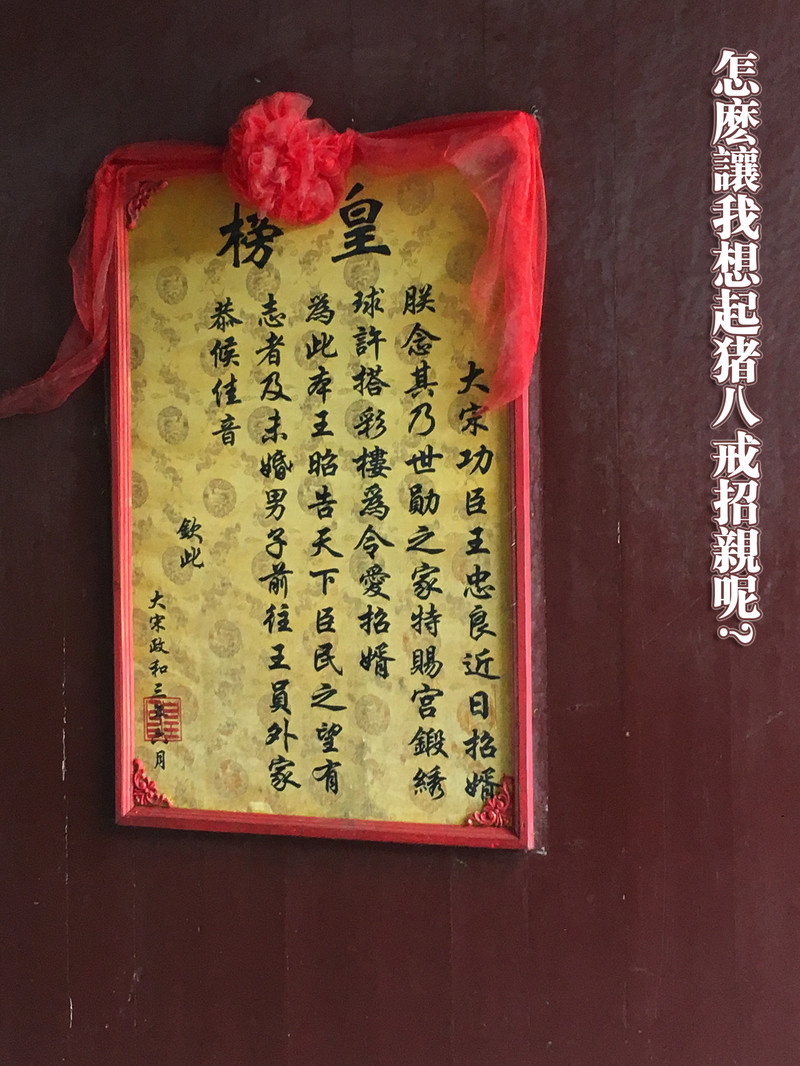 怎麽讓我想起猪八戒招親呢?
皇榜
大宋功臣王忠良近日招婿
朕念其乃世勛之家特賜宫鍛綉
球許搭彩樓爲令愛招婿
爲此本王昭告天下臣民之望有
志者及未婚男子前往王員外家
恭候佳音
欽此
大宋政和三年六月